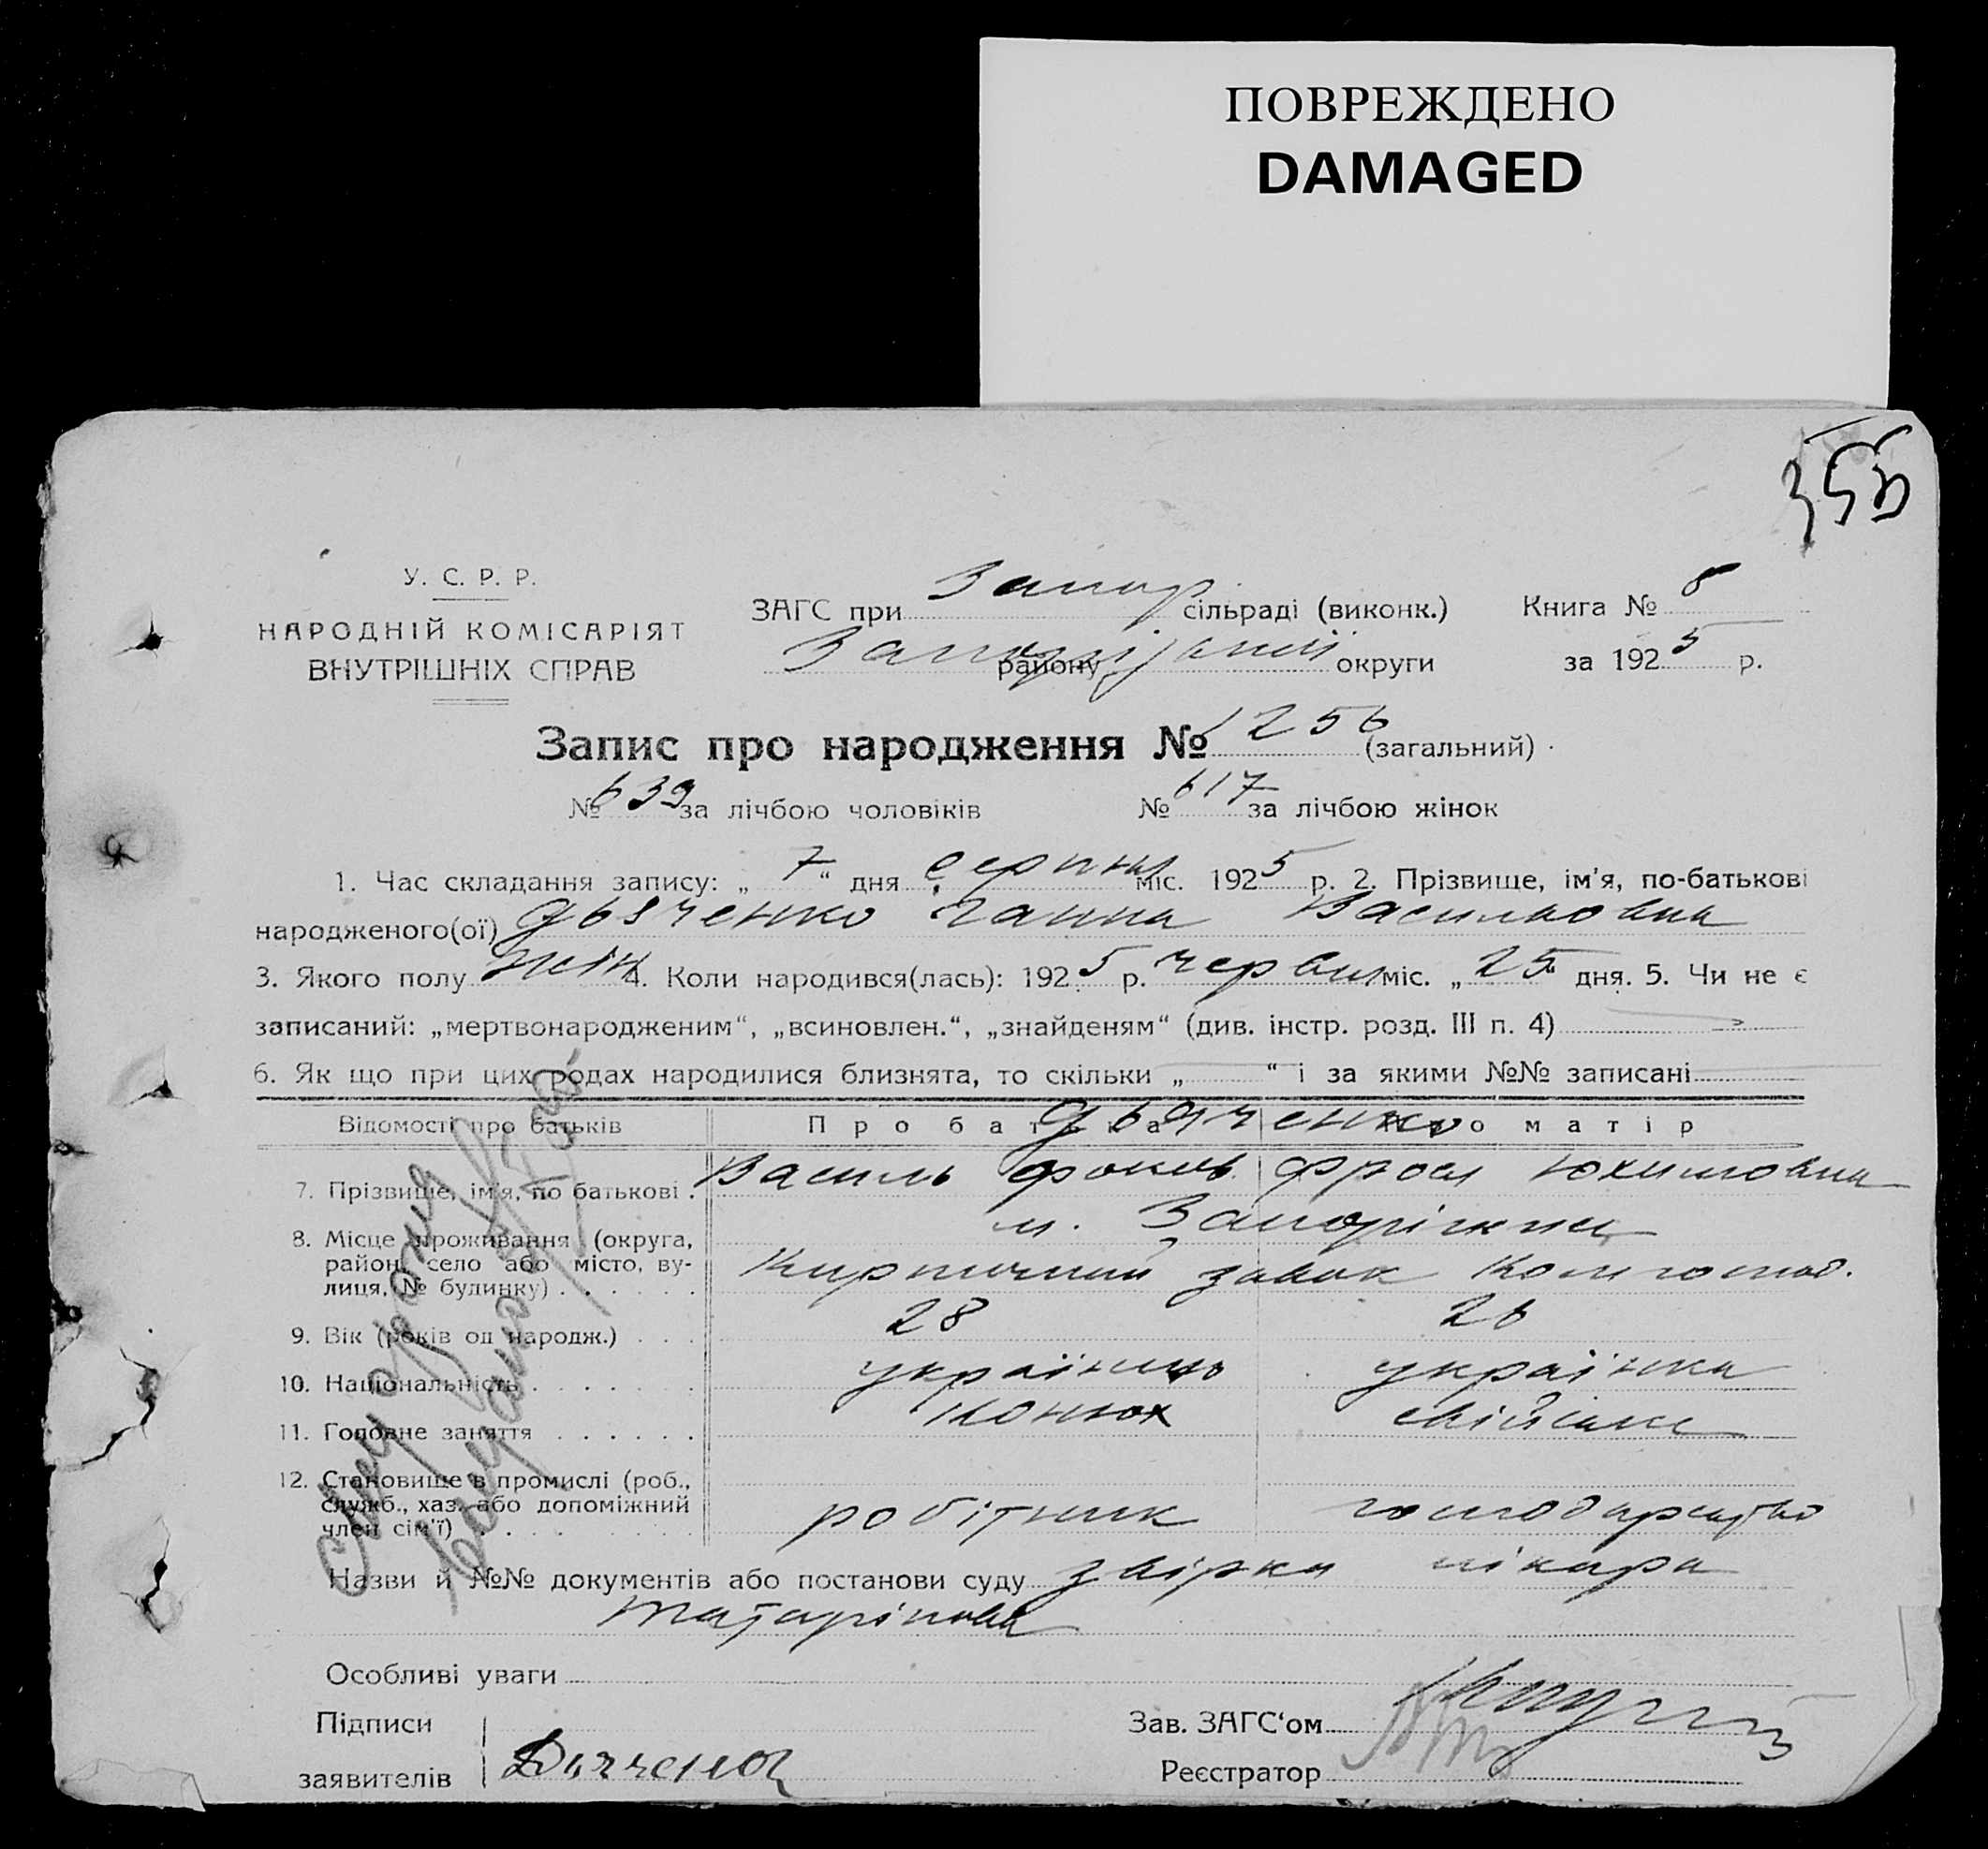 ПОВРЕЖДЕНО
DAMAGED
356
У. С. Р. Р.
НАРОДНІЙ КОМІСАРІЯТ
ВНУТРІШНІХ СПРАВ
ЗАГС при Запор. сільраді (виконк.) Книга № 8
району Запорізької округи за 1925 р.
Запис про народження № 1256 (загальний)
№ 639 за лічбою чоловіків № 617 за лічбою жінок
1. Час складання запису: „ 7 “ дня серпня міс. 1925 р. 2. Прізвище, ім'я, по-батькові
народженого(ої) Дьяченко Ганна Васильовна
3. Якого полу жін 4. Коли народився(лась): 1925 р. червня міс. „ 25 “ дня. 5. Чи не є
записаний: „мертвонародженим“, „всиновлен.“, „знайденям“ (див. інстр. розд. III п. 4)
6. Як що при цих родах народилися близнята, то скільки „ “ і за якими №№ записані
Відомості про батьків Про батька Про матір
Дьяченко
7. Прізвище, ім'я, по батькові . Василь Фоков. Фрося Юхимовна
8. Місце проживання (округа, район, село або місто, вулиця, № будинку) . . . . . . м. Запоріжжя
Кирпичний завок Комгоспод.
9. Вік (років од народж.) . . . 28 26
10. Національність . . . . . . . українець українка
11. Головне заняття . . . . . . конюх хатне
12. Становище в промислі (роб., служб., хаз. або допоміжний член сім'ї) . . . робітник господарство
Назви й №№ документів або постанови суду звірка лікаря
Татарінова
Особливі уваги
Підписи
заявителів Дяченко
Зав. ЗАГС‘ом
Реєстратор